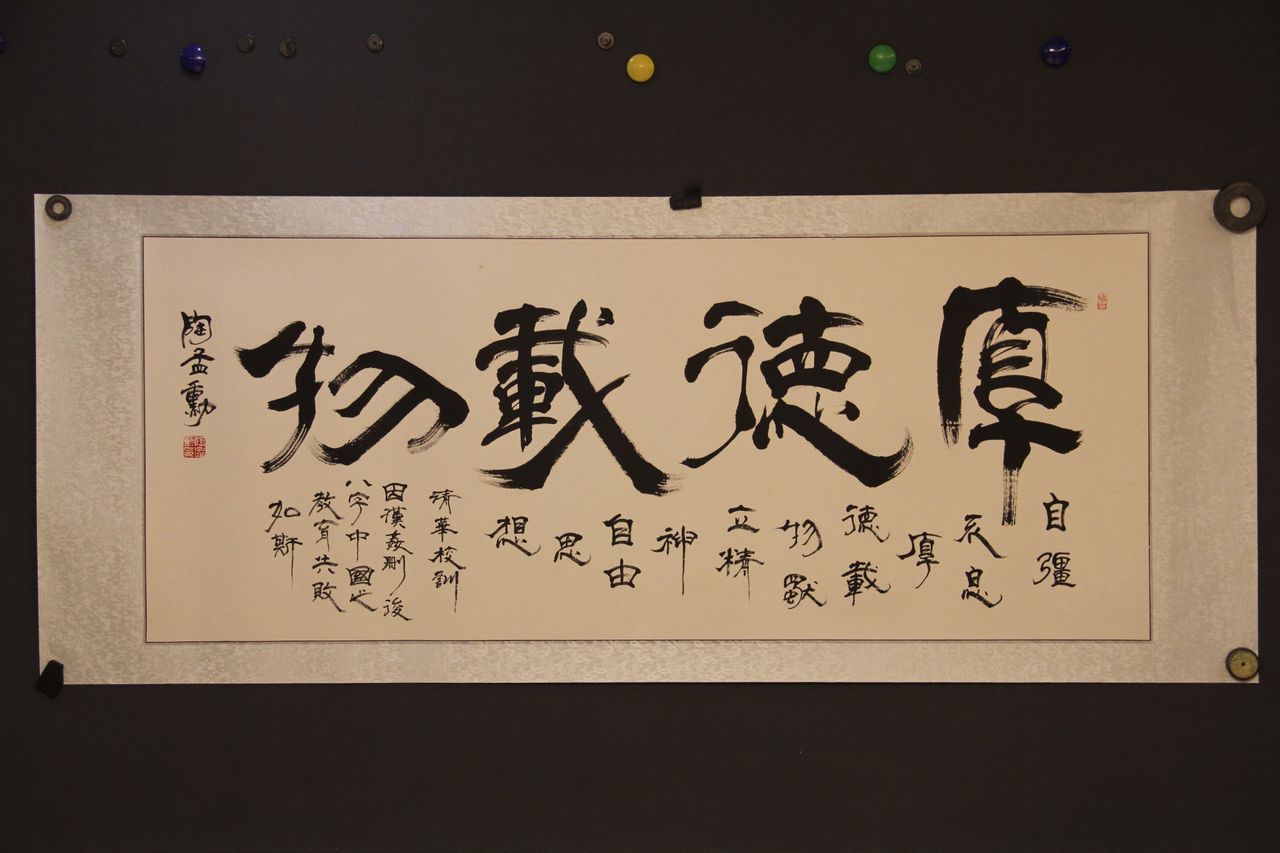 厚德載物
自彊
不息
厚
德載
物獨
立精
神
自由
思
想
清華校訓
因漢姦刪後
八字中國之
教育共敗
如斯
陶孟勳